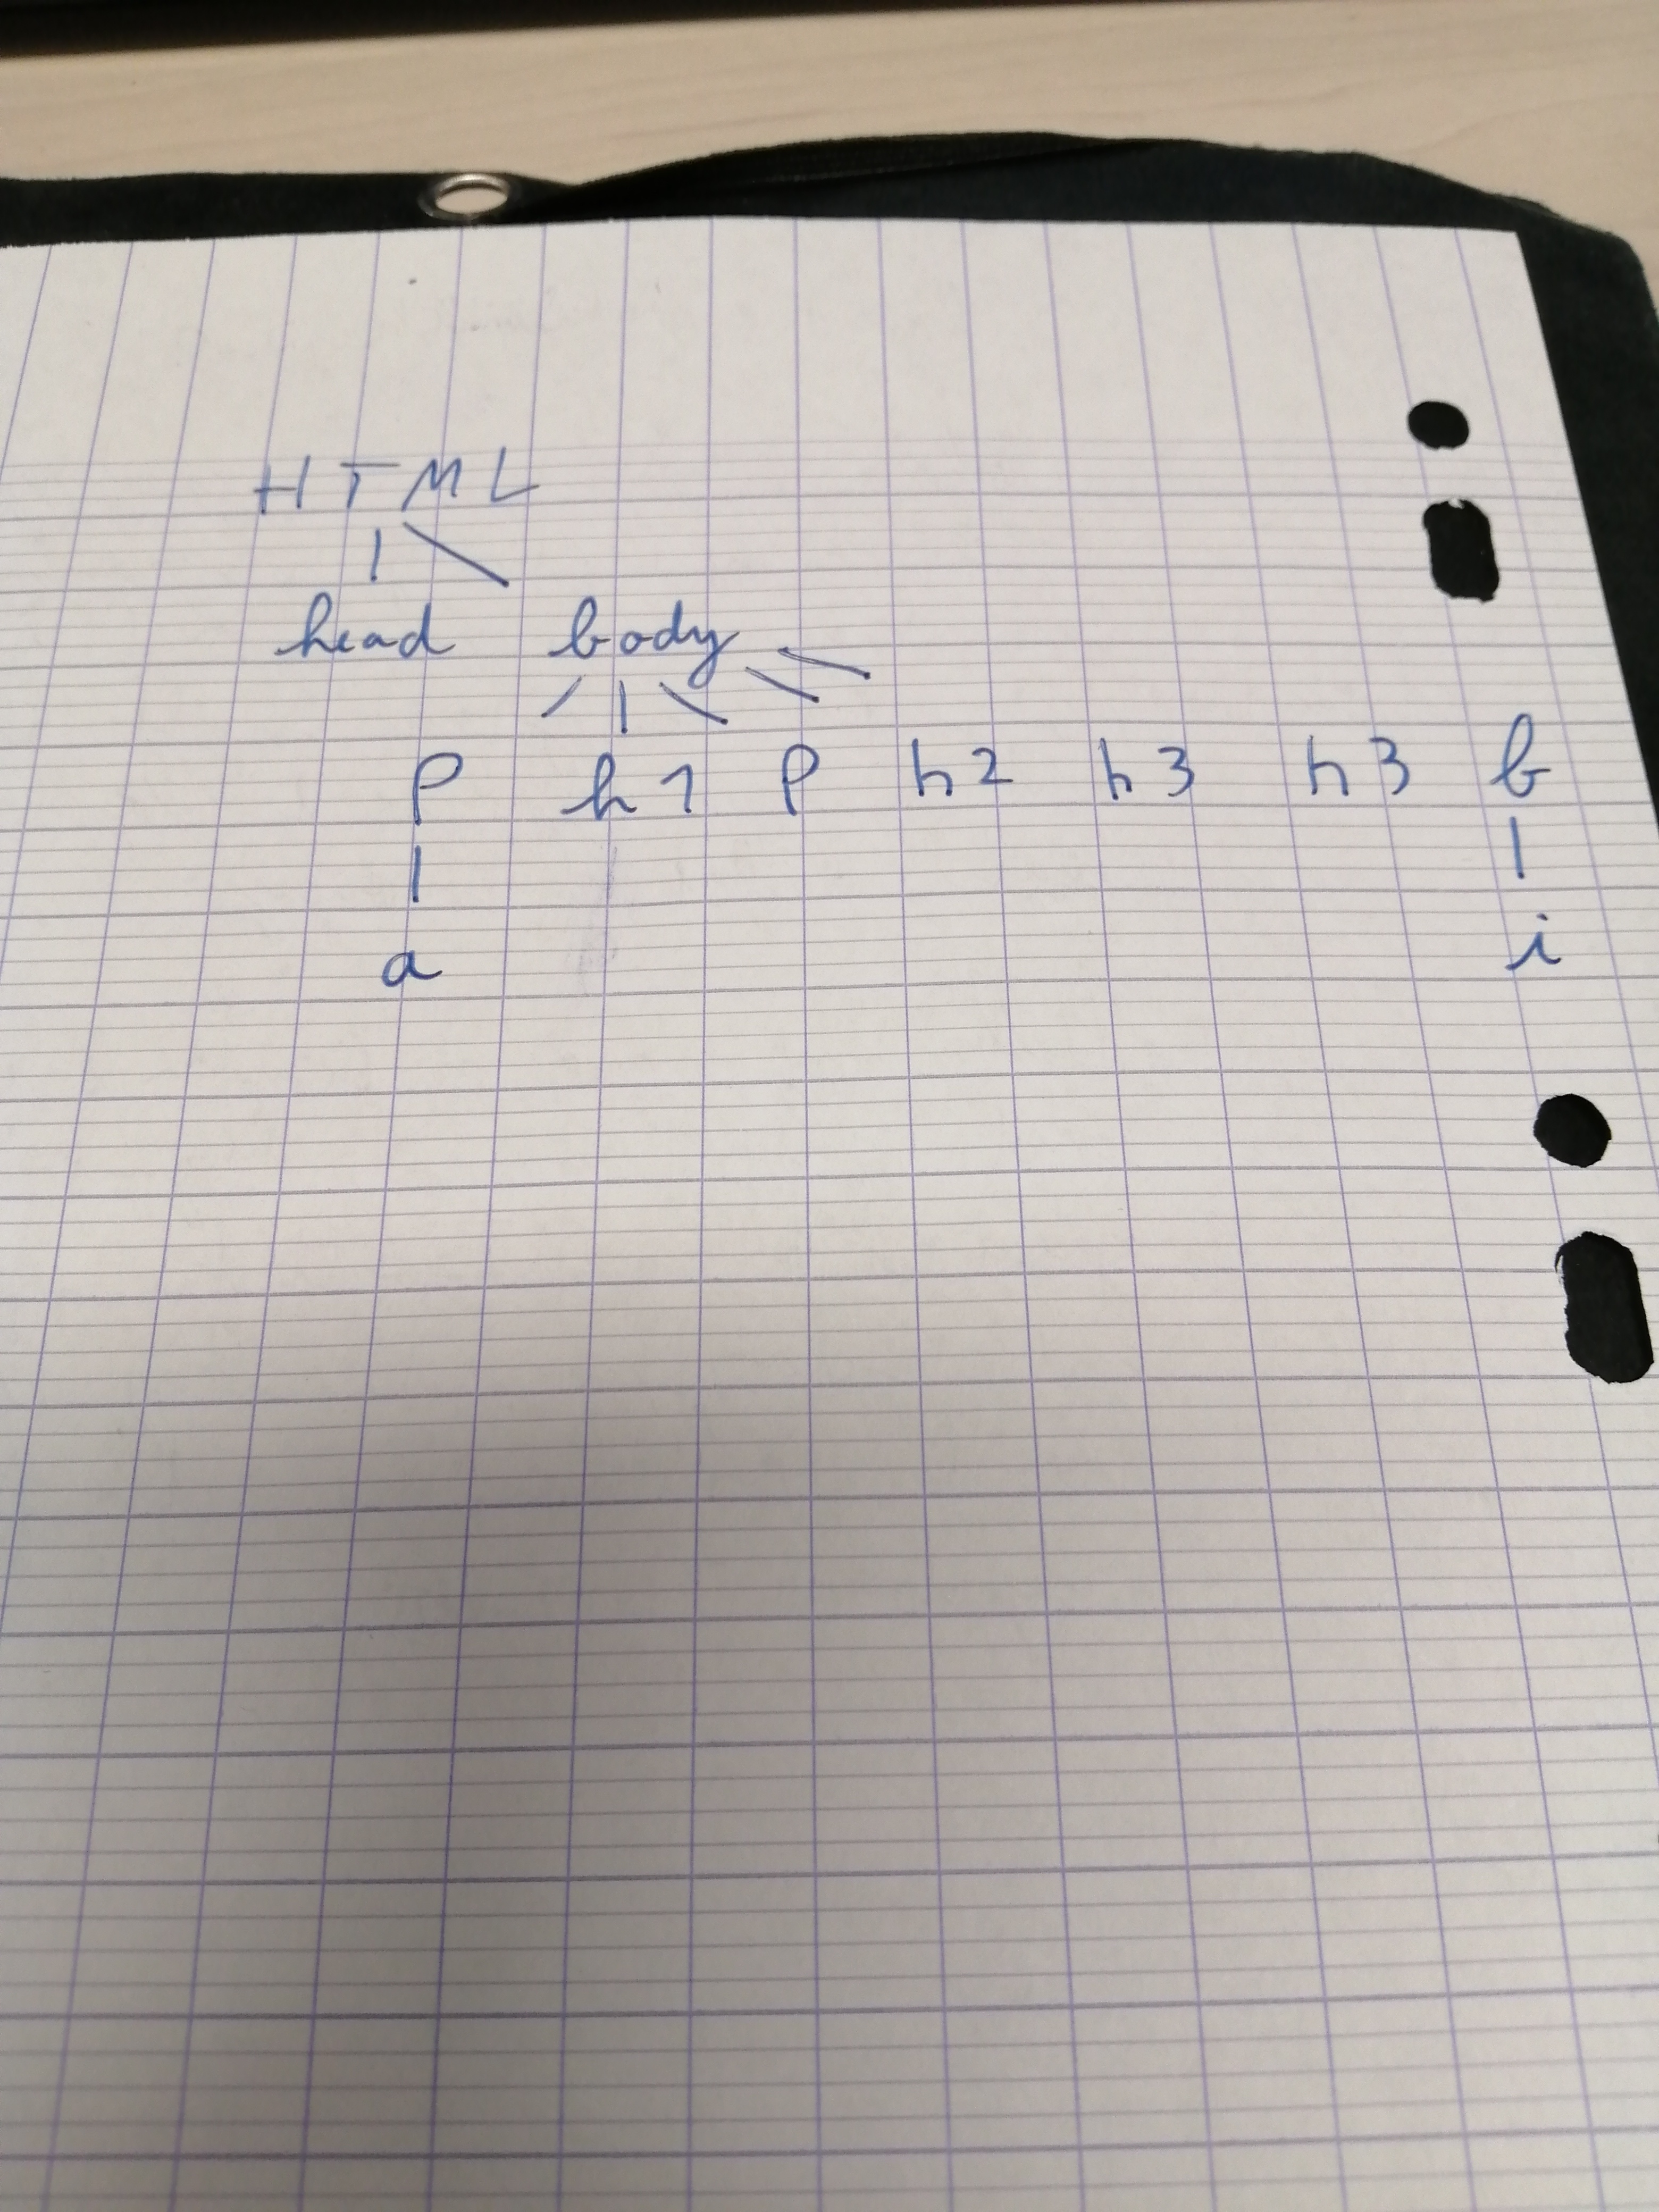 HTML
head body
p h1 p h2 h3 h3 b
a i